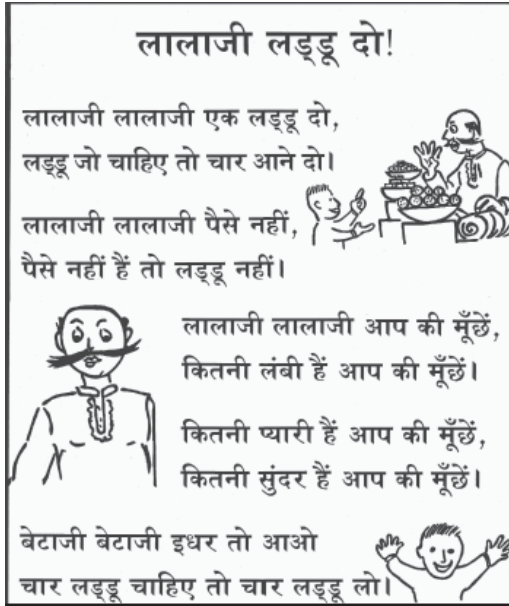 लालाजी लड्डू दो!
लालाजी लालाजी एक लड्डू दो,
लड्डू जो चाहिए तो चार आने दो।
लालाजी लालाजी पैसे नहीं,
पैसे नहीं हैं तो लड्डू नहीं।
लालाजी लालाजी आप की मूँछें,
कितनी लंबी हैं आप की मूँछें।
कितनी प्यारी हैं आप की मूँछें,
कितनी सुंदर हैं आप की मूँछें।
बेटाजी बेटाजी इधर तो आओ
चार लड्डू चाहिए तो चार लड्डू लो।